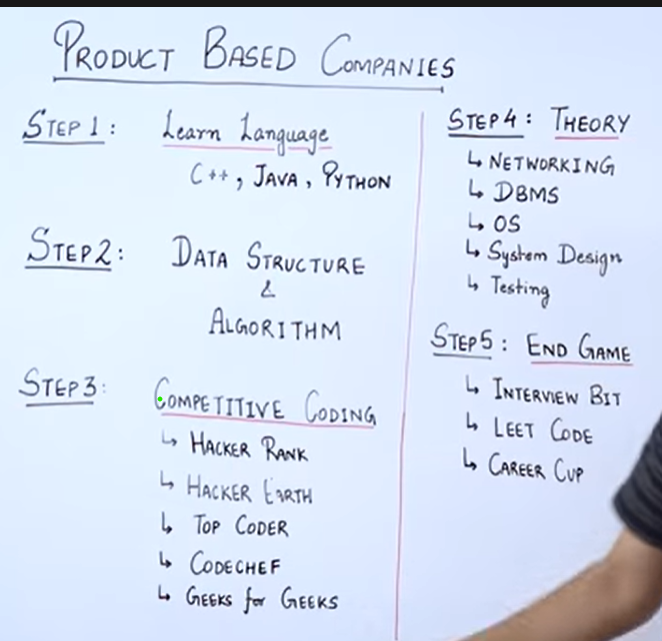 PRODUCT BASED COMPANIES
STEP 1 : Learn Language
C++, JAVA, PYTHON
STEP 2 : DATA STRUCTURE
&
ALGORITHM
STEP 3 : COMPETITIVE CODING
↳ HACKER RANK
↳ HACKER EARTH
↳ TOP CODER
↳ CODECHEF
↳ GEEKS for GEEKS
STEP 4 : THEORY
↳ NETWORKING
↳ DBMS
↳ OS
↳ System Design
↳ Testing
STEP 5 : END GAME
↳ INTERVIEW BIT
↳ LEET CODE
↳ CAREER CUP